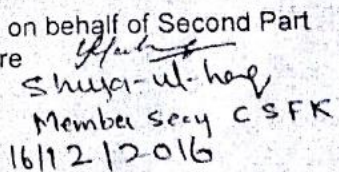 on behalf of Second Part
re
Shuja-ul-haq
Member Secy CSFK
16/12/2016